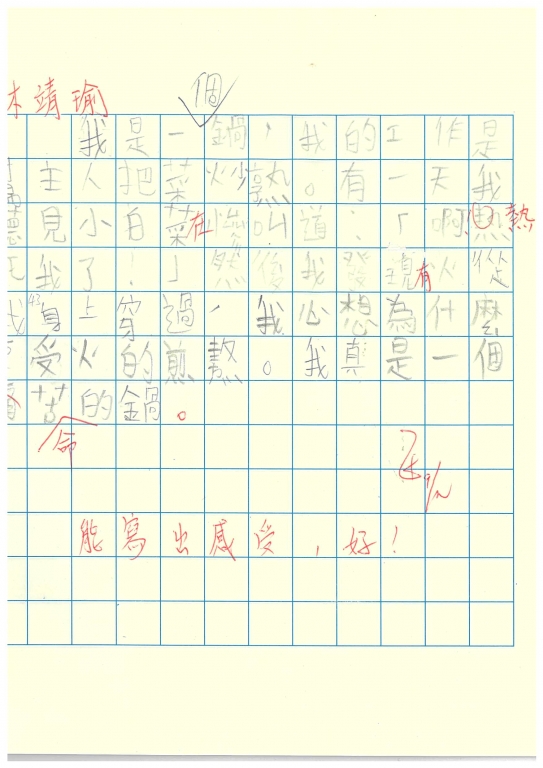 靖瑜
個
我是一鍋，我的工作是
主人把菜炒熟。有一天我
聽見小白菜在慘叫道：「啊！熱
死我了！」然後我發現有火從
我身上穿過，我心想為什麼
受火的煎熬。我真是一個
苦的鍋。
命
能寫出感受，好！